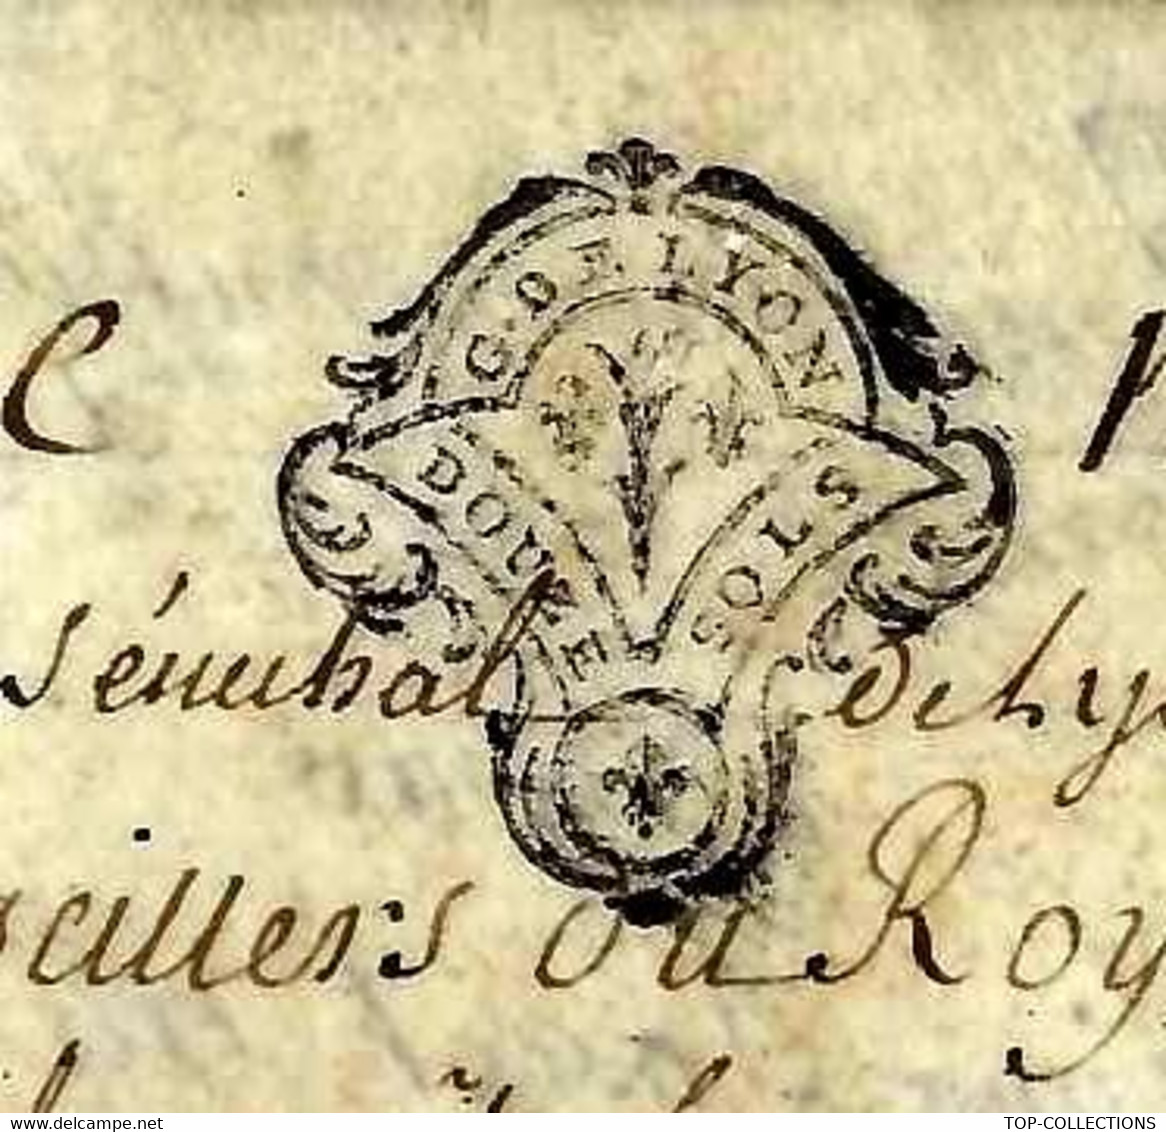 G. DE LYON
DOUZE SOLS
C
sénéchal de Ly
aillers du Roy
delcampe.net
TOP-COLLECTIONS